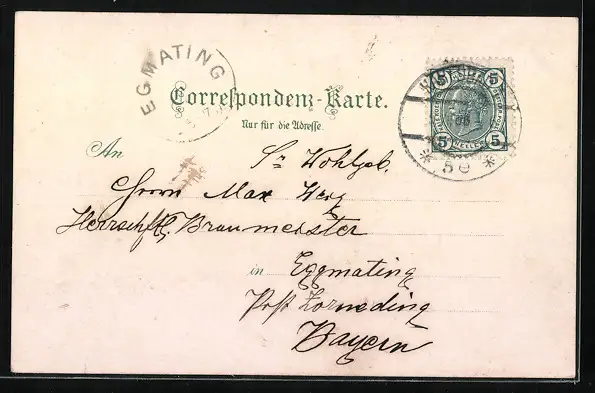 EGMATING
Correspondenz-Karte.
Nur für die Adresse.
5 5
5 5
* 5e *
An Sr Wohlgeb.
Herrn Max
Herrschftl. Braumeister
in Eggmating
Post Zorneding
Bayern